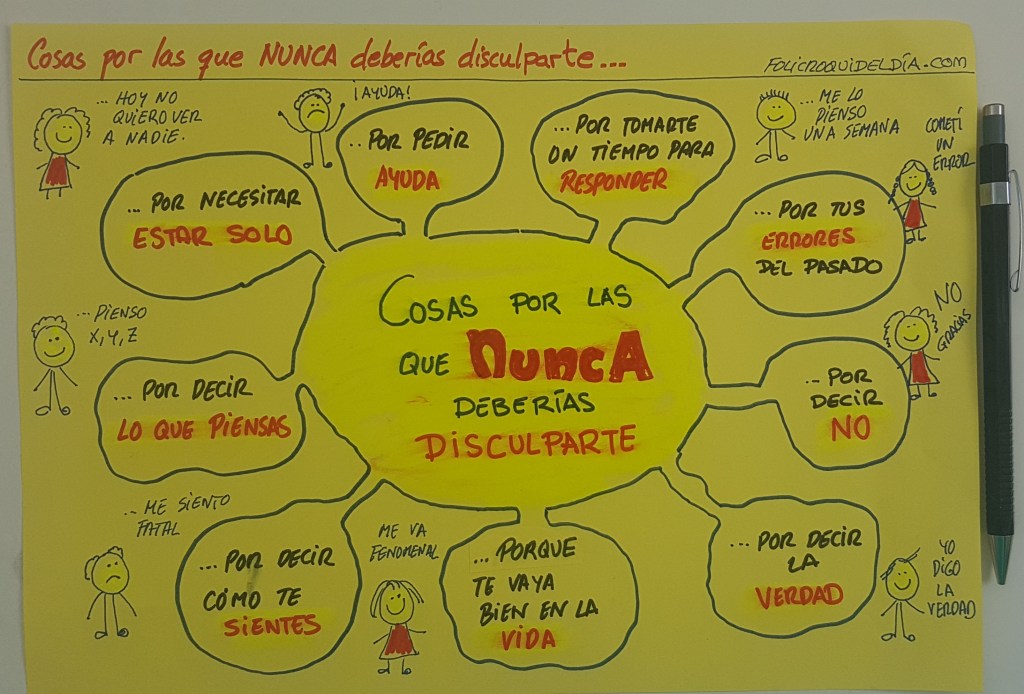 Cosas por las que NUNCA deberías disculparte...
FOLICROQUIDELDÍA.COM
...HOY NO
QUIERO VER
A NADIE.
... POR NECESITAR
ESTAR SOLO
¡AYUDA!
...POR PEDIR
AYUDA
... POR TOMARTE
UN TIEMPO PARA
RESPONDER
...ME LO
PIENSO
UNA SEMANA
COMETÍ
UN
ERROR
... POR TUS
ERRORES
DEL PASADO
COSAS POR LAS
QUE NUNCA
DEBERÍAS
DISCULPARTE
...PIENSO
X,Y,Z
... POR DECIR
LO QUE PIENSAS
NO
GRACIAS
... POR
DECIR
NO
...ME SIENTO
FATAL
... POR DECIR
CÓMO TE
SIENTES
ME VA
FENOMENAL
... PORQUE
TE VAYA
BIEN EN LA
VIDA
... POR DECIR
LA
VERDAD
YO
DIGO
LA
VERDAD